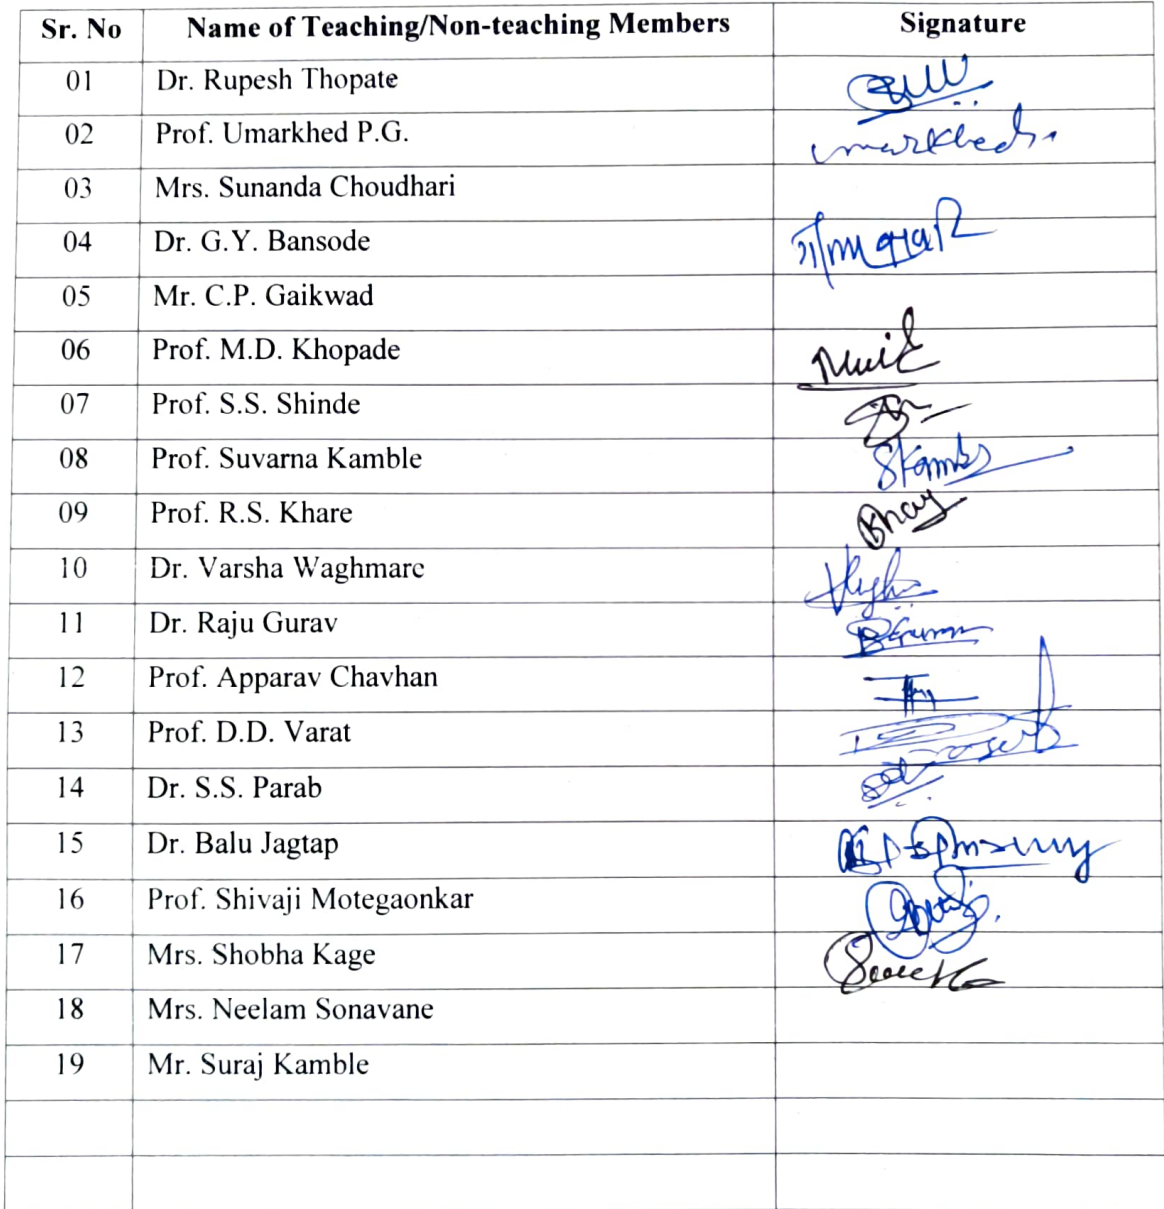 Sr. No Name of Teaching/Non-teaching Members Signature
01 Dr. Rupesh Thopate
02 Prof. Umarkhed P.G. Umarkhed
03 Mrs. Sunanda Choudhari
04 Dr. G.Y. Bansode
05 Mr. C.P. Gaikwad
06 Prof. M.D. Khopade
07 Prof. S.S. Shinde
08 Prof. Suvarna Kamble
09 Prof. R.S. Khare
10 Dr. Varsha Waghmare
11 Dr. Raju Gurav
12 Prof. Apparav Chavhan
13 Prof. D.D. Varat
14 Dr. S.S. Parab
15 Dr. Balu Jagtap
16 Prof. Shivaji Motegaonkar
17 Mrs. Shobha Kage
18 Mrs. Neelam Sonavane
19 Mr. Suraj Kamble